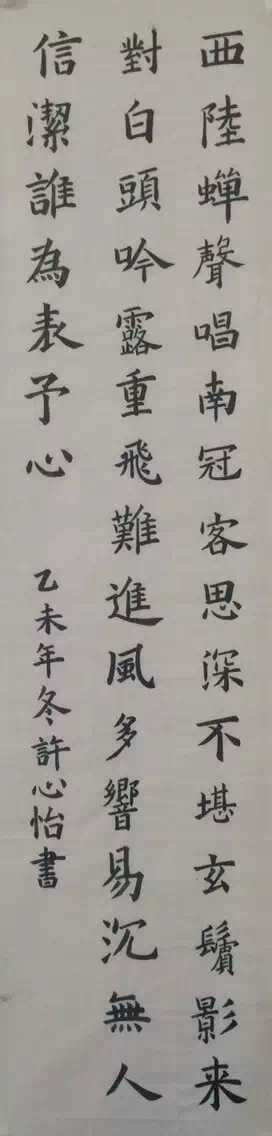 西陸蟬聲唱南冠客思深不堪玄鬢影来
對白頭吟露重飛難進風多響易沉無人
信潔誰為表予心
乙未年冬許心怡書